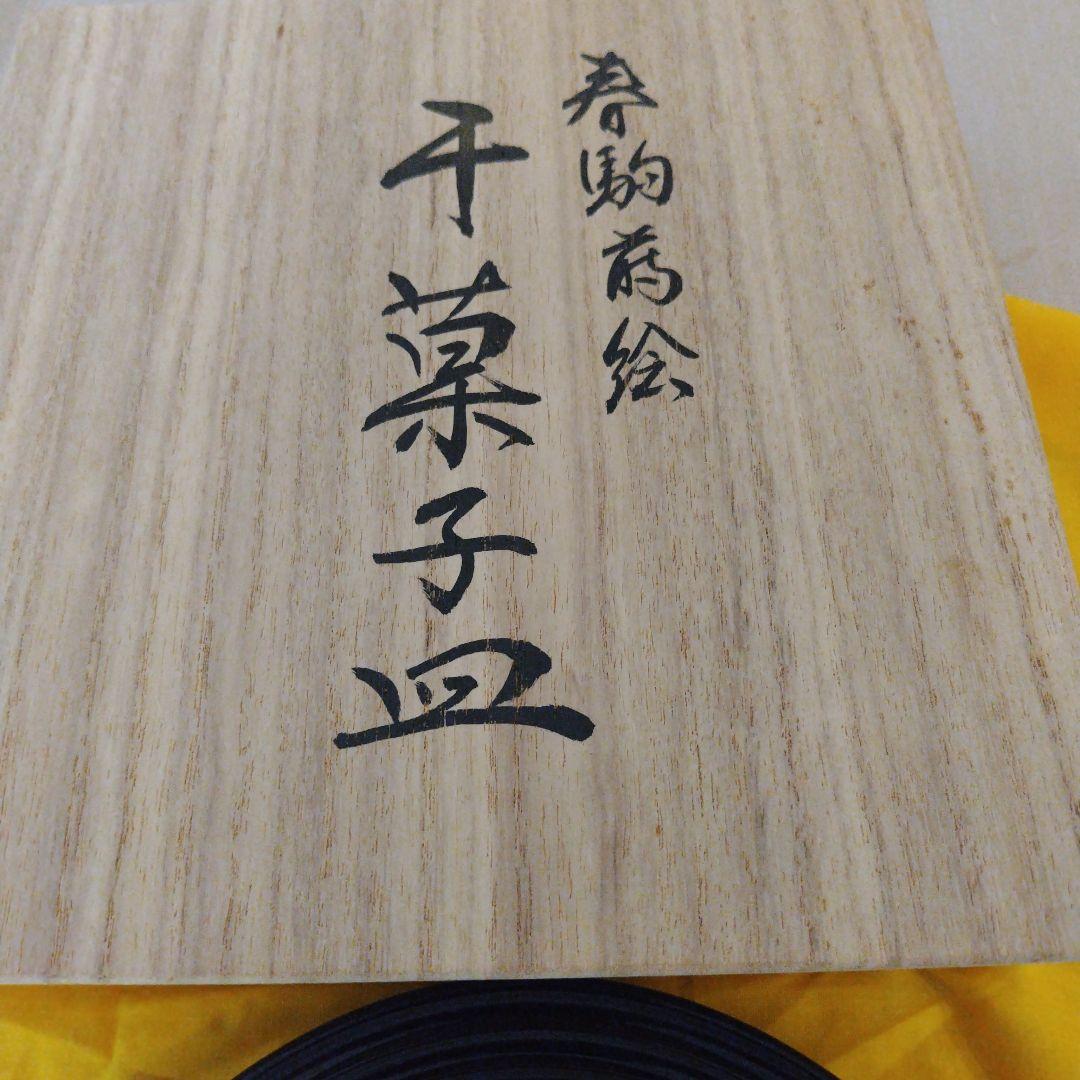 春駒蒔絵
干菓子皿